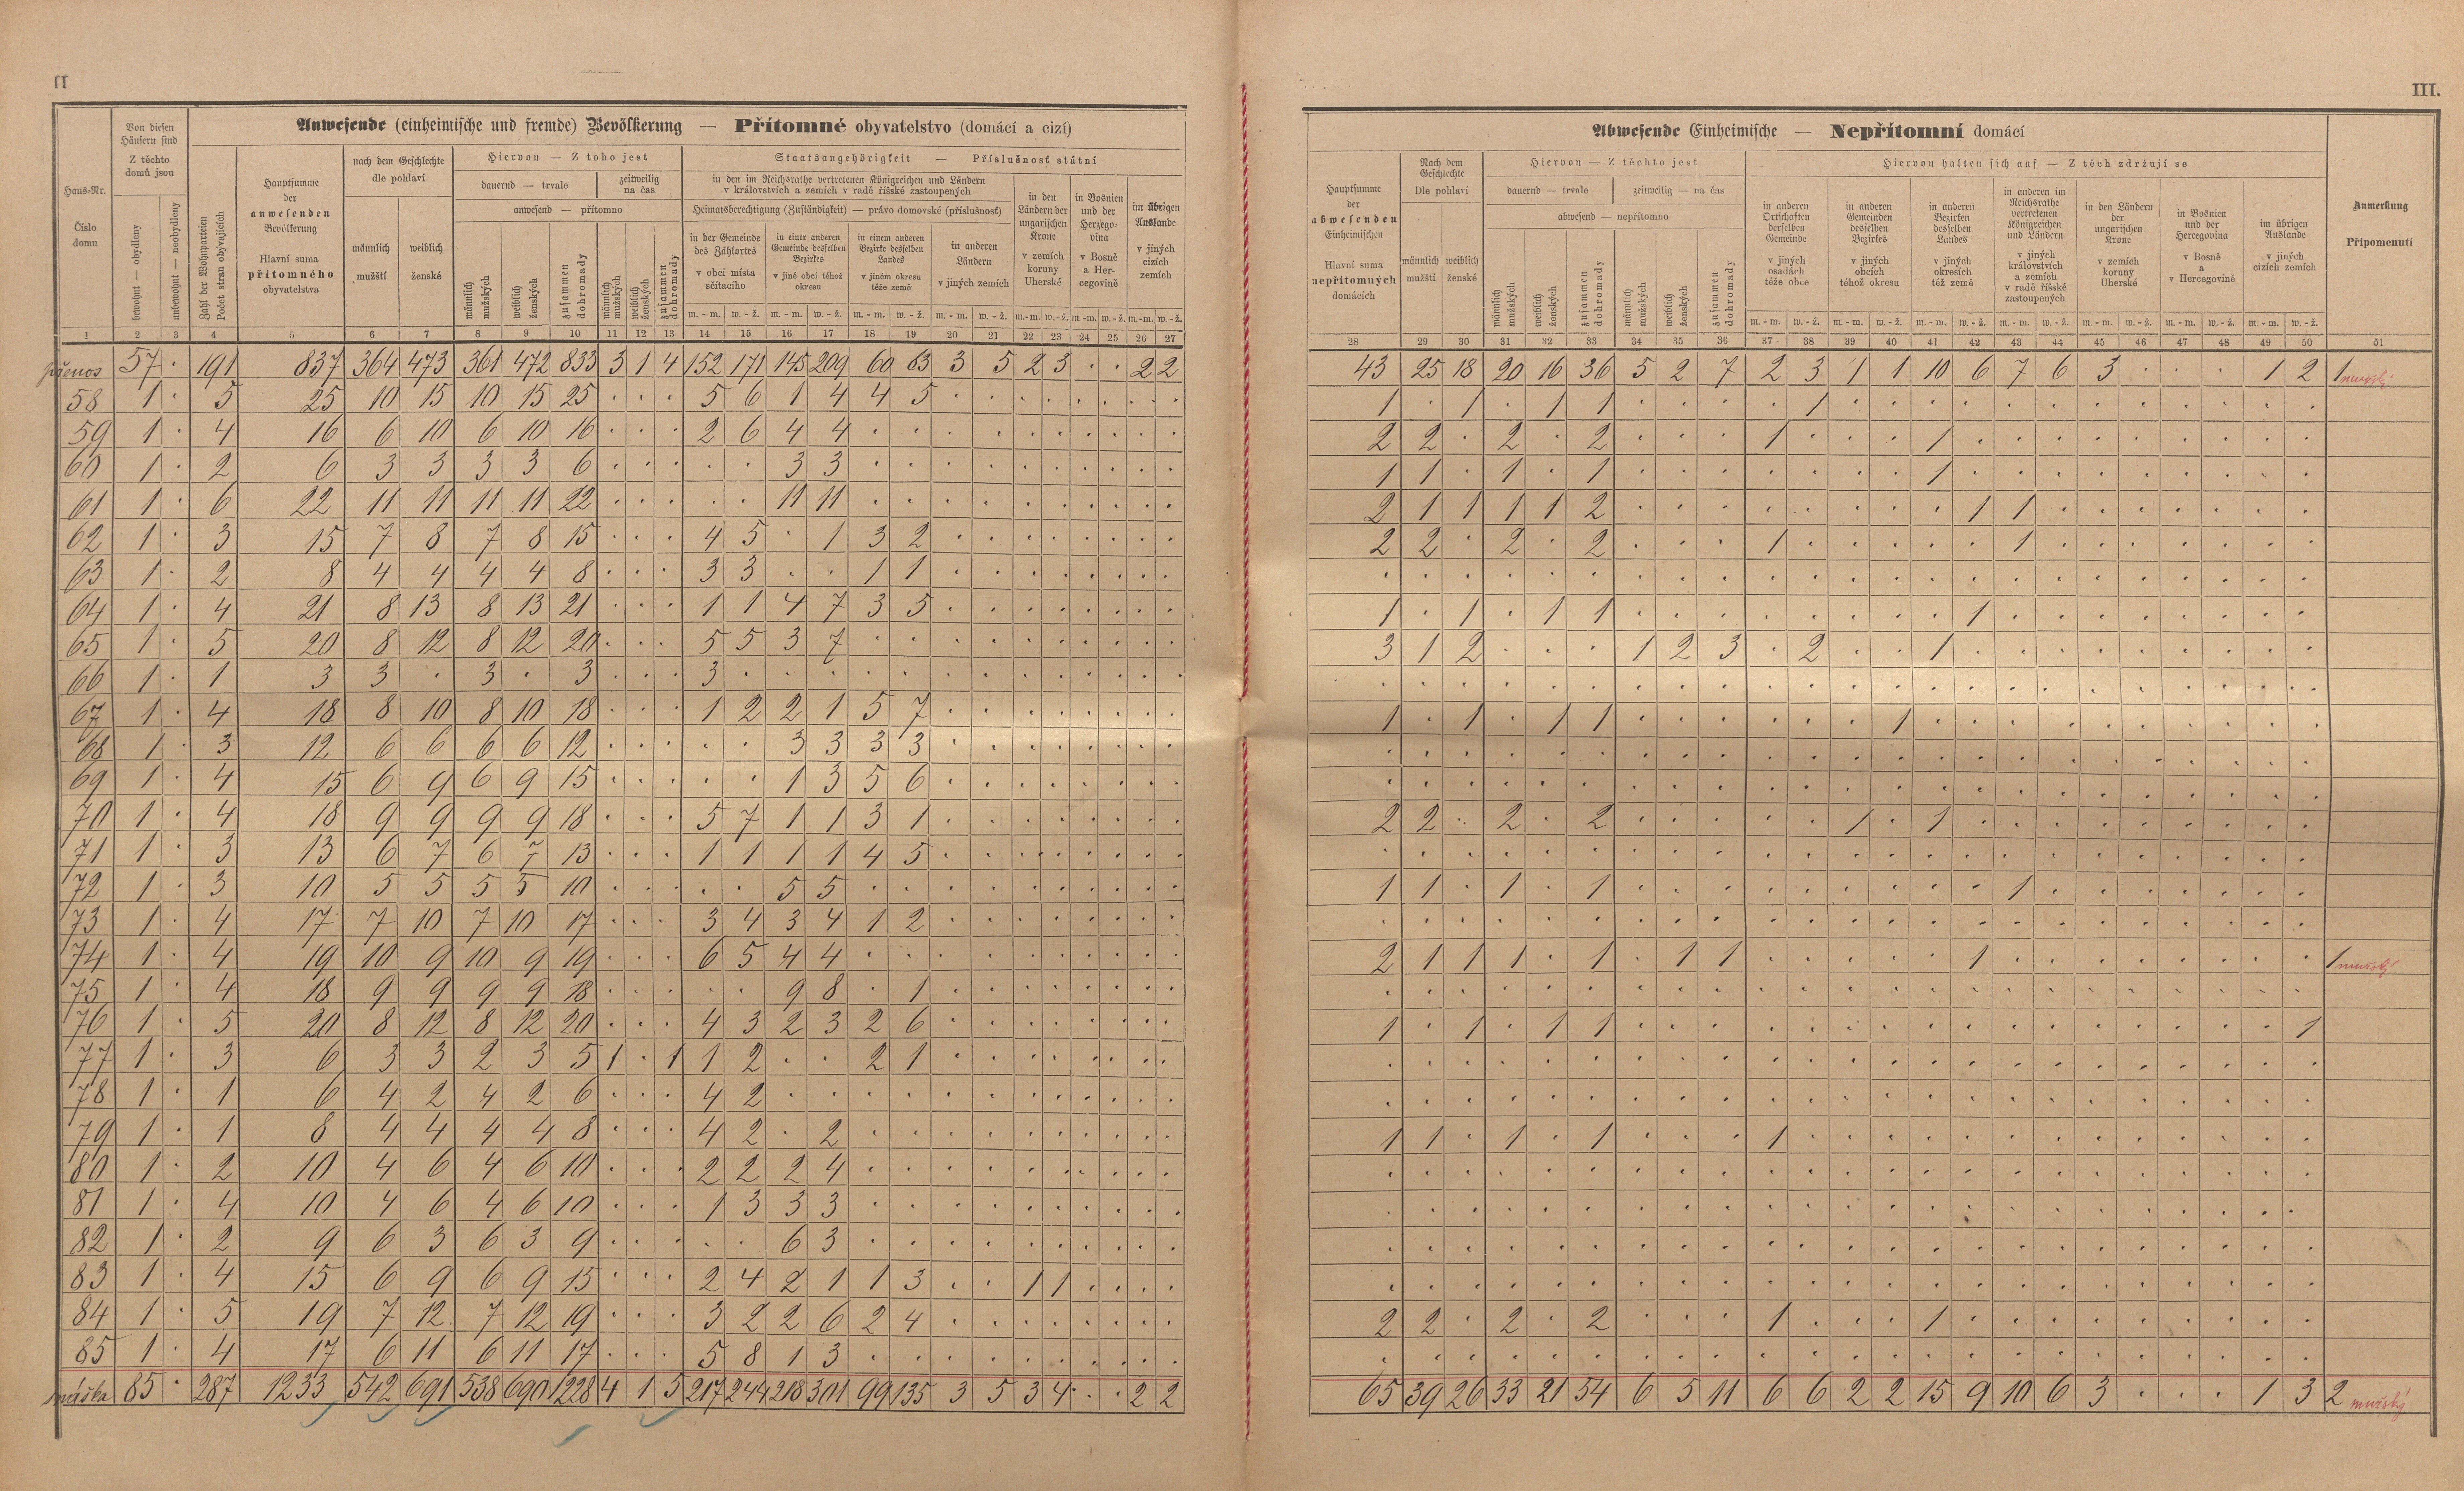 II
III.
Anwesende (einheimische und fremde) Bevölkerung — Přítomné obyvatelstvo (domácí a cizí)
Haus-Nr.
Číslo domu
Von diesen Häusern sind
Z těchto domů jsou
bewohnt — obydleny
unbewohnt — neobydleny
Zahl der Wohnparteien
Počet stran obývajících
Hauptsumme der anwesenden Bevölkerung
Hlavní suma přítomného obyvatelstva
nach dem Geschlechte
dle pohlaví
männlich mužští
weiblich ženské
Hiervon — Z toho jest
dauernd — trvale
zeitweilig na čas
anwesend — přítomno
männlich mužských
weiblich ženských
zusammen dohromady
männlich mužských
weiblich ženských
zusammen dohromady
Staatsangehörigkeit — Příslušnosť státní
in den im Reichsrathe vertretenen Königreichen und Ländern
v královstvích a zemích v radě říšské zastoupených
Heimatsberechtigung (Zuständigkeit) — právo domovské (příslušnosť)
in der Gemeinde des Zählortes
v obci místa sčítacího
in einer anderen Gemeinde desselben Bezirkes
v jiné obci téhož okresu
in einem anderen Bezirke desselben Landes
v jiném okresu téže země
in anderen Ländern
v jiných zemích
in den Ländern der ungarischen Krone
v zemích koruny Uherské
in Bosnien und der Herzegovina
v Bosně a Hercegovině
im übrigen Auslande
v jiných cizích zemích
m. - m. w. - ž. m. - m. w. - ž. m. - m. w. - ž. m. - m. w. - ž. m.-m. w.-ž. m.-m. w.-ž. m.-m. w.-ž.
1 2 3 4 5 6 7 8 9 10 11 12 13 14 15 16 17 18 19 20 21 22 23 24 25 26 27
přenos 57 · 191 837 364 473 361 472 833 3 1 4 152 171 145 209 60 83 3 5 2 3 · · 2 2
58 1 · 5 25 10 15 10 15 25 · · · 5 6 1 4 4 5 · · · · · · · ·
59 1 · 4 16 6 10 6 10 16 · · · 2 6 4 4 · · · · · · · · · ·
60 1 · 2 6 3 3 3 3 6 · · · · · 3 3 · · · · · · · · · ·
61 1 · 6 22 11 11 11 11 22 · · · · · 11 11 · · · · · · · · · ·
62 1 · 3 15 7 8 7 8 15 · · · 4 5 · 1 3 2 · · · · · · · ·
63 1 · 2 8 4 4 4 4 8 · · · 3 3 · · 1 1 · · · · · · · ·
64 1 · 4 21 8 13 8 13 21 · · · 1 1 4 7 3 5 · · · · · · · ·
65 1 · 5 20 8 12 8 12 20 · · · 5 5 3 7 · · · · · · · · · ·
66 1 · 1 3 3 · 3 · 3 · · · 3 · · · · · · · · · · · · ·
67 1 · 4 18 8 10 8 10 18 · · · 1 2 2 1 5 7 · · · · · · · ·
68 1 · 3 12 6 6 6 6 12 · · · · · 3 3 3 3 · · · · · · · ·
69 1 · 4 15 6 9 6 9 15 · · · · · 1 3 5 6 · · · · · · · ·
70 1 · 4 18 9 9 9 9 18 · · · 5 7 1 1 3 1 · · · · · · · ·
71 1 · 3 13 6 7 6 7 13 · · · 1 1 1 1 4 5 · · · · · · · ·
72 1 · 3 10 5 5 5 5 10 · · · · · 5 5 · · · · · · · · · ·
73 1 · 4 17 7 10 7 10 17 · · · 3 4 3 4 1 2 · · · · · · · ·
74 1 · 4 19 10 9 10 9 19 · · · 6 5 4 4 · · · · · · · · · ·
75 1 · 4 18 9 9 9 9 18 · · · · · 9 8 · 1 · · · · · · · ·
76 1 · 5 20 8 12 8 12 20 · · · 4 3 2 3 2 6 · · · · · · · ·
77 1 · 3 6 3 3 2 3 5 1 · 1 1 2 · · 2 1 · · · · · · · ·
78 1 · 1 6 4 2 4 2 6 · · · 4 2 · · · · · · · · · · · ·
79 1 · 1 8 4 4 4 4 8 · · · 4 2 · 2 · · · · · · · · · ·
80 1 · 2 10 4 6 4 6 10 · · · 2 2 2 4 · · · · · · · · · ·
81 1 · 4 10 4 6 4 6 10 · · · 1 3 3 3 · · · · · · · · · ·
82 1 · 2 9 6 3 6 3 9 · · · · · 6 3 · · · · · · · · · ·
83 1 · 4 15 6 9 6 9 15 · · · 2 4 2 1 1 3 · · 1 1 · · · ·
84 1 · 5 19 7 12 7 12 19 · · · 3 2 2 6 2 4 · · · · · · · ·
85 1 · 4 17 6 11 6 11 17 · · · 5 8 1 3 · · · · · · · · · ·
85 · 287 1233 542 691 538 690 1228 4 1 5 217 244 218 301 99 135 3 5 3 4 · · 2 2
Abwesende Einheimische — Nepřítomní domácí
Hauptsumme der abwesenden Einheimischen
Hlavní suma nepřítomných domácích
Nach dem Geschlechte
Dle pohlaví
männlich mužští
weiblich ženské
Hiervon — Z těchto jest
dauernd — trvale
zeitweilig — na čas
abwesend — nepřítomno
männlich mužských
weiblich ženských
zusammen dohromady
männlich mužských
weiblich ženských
zusammen dohromady
Hiervon halten sich auf — Z těch zdržují se
in anderen Ortschaften derselben Gemeinde
v jiných osadách téže obce
in anderen Gemeinden desselben Bezirkes
v jiných obcích téhož okresu
in anderen Bezirken desselben Landes
v jiných okresích též země
in anderen im Reichsrathe vertretenen Königreichen und Ländern
v jiných královstvích a zemích v radě říšské zastoupených
in den Ländern der ungarischen Krone
v zemích koruny Uherské
in Bosnien und der Hercegovina
v Bosně a Hercegovině
im übrigen Auslande
v jiných cizích zemích
Anmerkung
Připomenutí
m. - m. w. - ž. m. - m. w. - ž. m. - m. w. - ž. m. - m. w. - ž. m. - m. w. - ž. m. - m. w. - ž. m. - m. w. - ž.
28 29 30 31 32 33 34 35 36 37 38 39 40 41 42 43 44 45 46 47 48 49 50 51
43 25 18 20 16 36 5 2 7 2 3 1 1 10 6 7 6 3 · · · 1 2 1
1 · 1 · 1 1 · · · · 1 · · · · · · · · · · · ·
2 2 · 2 · 2 · · · 1 · · · 1 · · · · · · · · ·
1 1 · 1 · 1 · · · · · · · 1 · · · · · · · · ·
2 1 1 1 1 2 · · · · · · · · 1 1 · · · · · · ·
2 2 · 2 · 2 · · · 1 · · · · · 1 · · · · · · ·
· · · · · · · · · · · · · · · · · · · · · · ·
1 · 1 · 1 1 · · · · · · · · 1 · · · · · · · ·
3 1 2 · · · 1 2 3 · 2 · · 1 · · · · · · · · ·
· · · · · · · · · · · · · · · · · · · · · · ·
1 · 1 · 1 1 · · · · · · 1 · · · · · · · · · ·
· · · · · · · · · · · · · · · · · · · · · · ·
· · · · · · · · · · · · · · · · · · · · · · ·
2 2 · 2 · 2 · · · · · 1 · 1 · · · · · · · · ·
· · · · · · · · · · · · · · · · · · · · · · ·
1 1 · 1 · 1 · · · · · · · · · 1 · · · · · · ·
· · · · · · · · · · · · · · · · · · · · · · ·
2 1 1 1 · 1 · 1 1 · · · · · 1 · · · · · · · · 1
· · · · · · · · · · · · · · · · · · · · · · ·
1 · 1 · 1 1 · · · · · · · · · · · · · · · · 1
· · · · · · · · · · · · · · · · · · · · · · ·
· · · · · · · · · · · · · · · · · · · · · · ·
1 1 · 1 · 1 · · · 1 · · · · · · · · · · · · ·
· · · · · · · · · · · · · · · · · · · · · · ·
· · · · · · · · · · · · · · · · · · · · · · ·
· · · · · · · · · · · · · · · · · · · · · · ·
· · · · · · · · · · · · · · · · · · · · · · ·
2 2 · 2 · 2 · · · 1 · · · 1 · · · · · · · · ·
· · · · · · · · · · · · · · · · · · · · · · ·
65 39 26 33 21 54 6 5 11 6 6 2 2 15 9 10 6 3 · · · 1 3 2